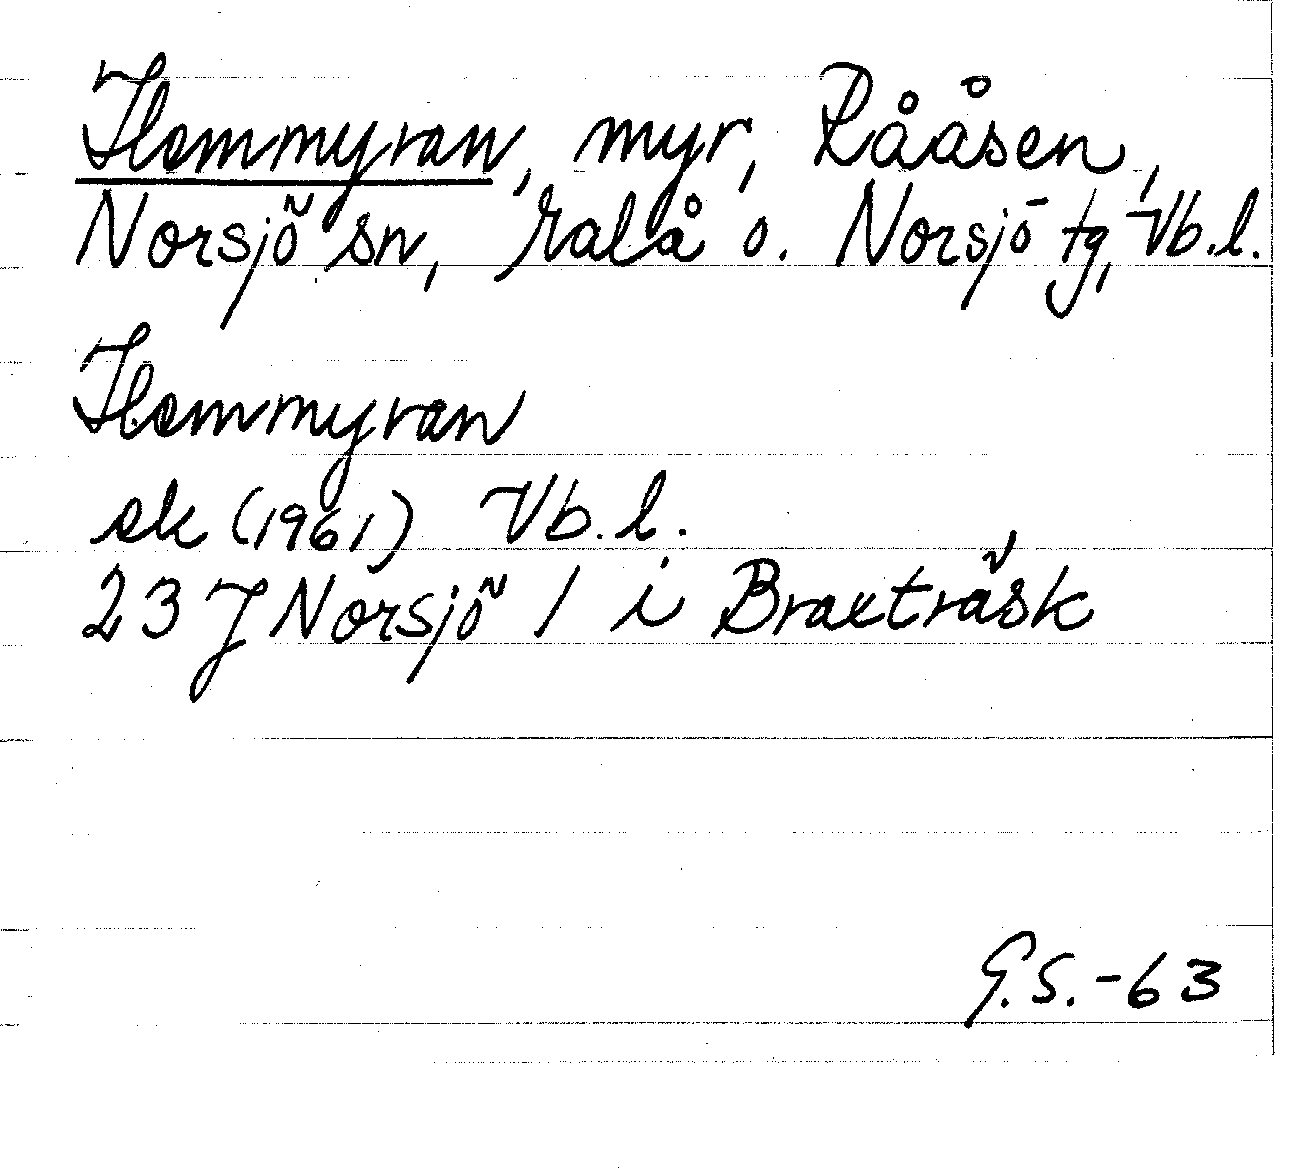 Hemmyran, myr, Rååsen,
Norsjö sn, Malå o. Norsjö tg, Vb.l.
Hemmyran
ek (1961) Vb.l.
23 J Norsjö / i Braxträsk
G.S.-63